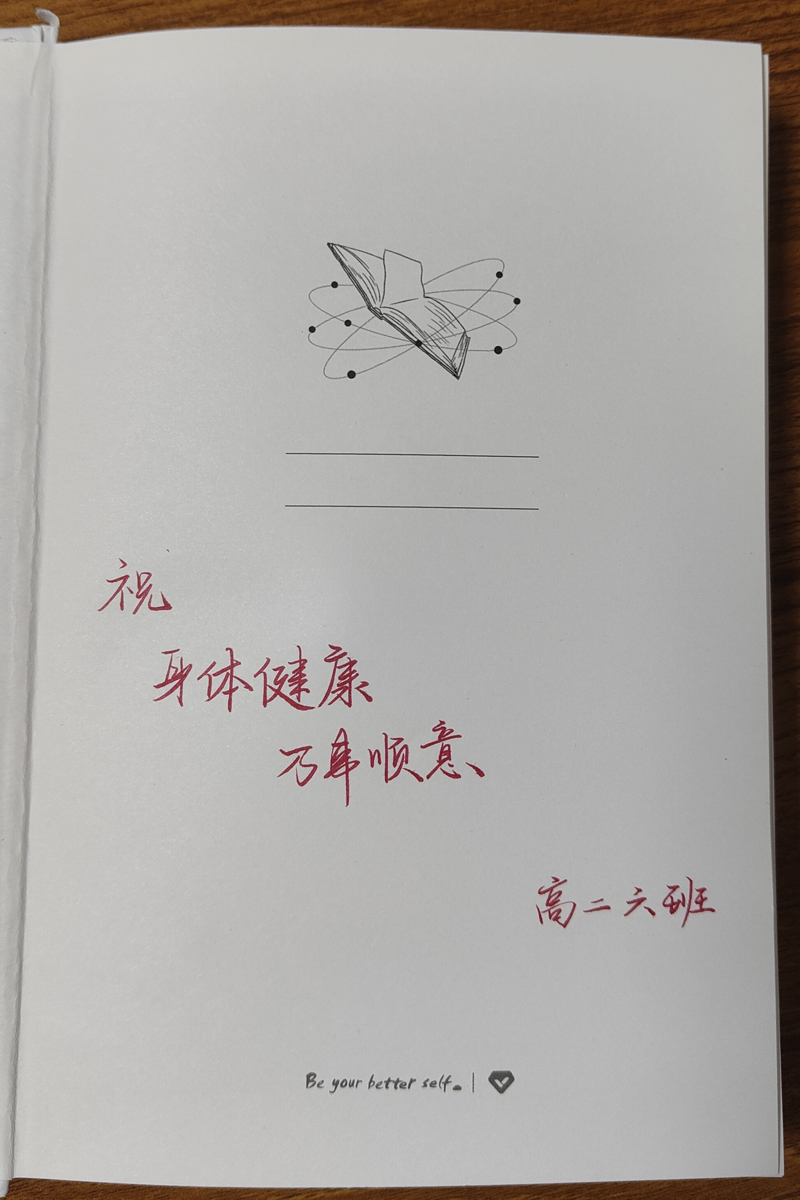 祝
身体健康
万事顺意
高二六班
Be your better self.